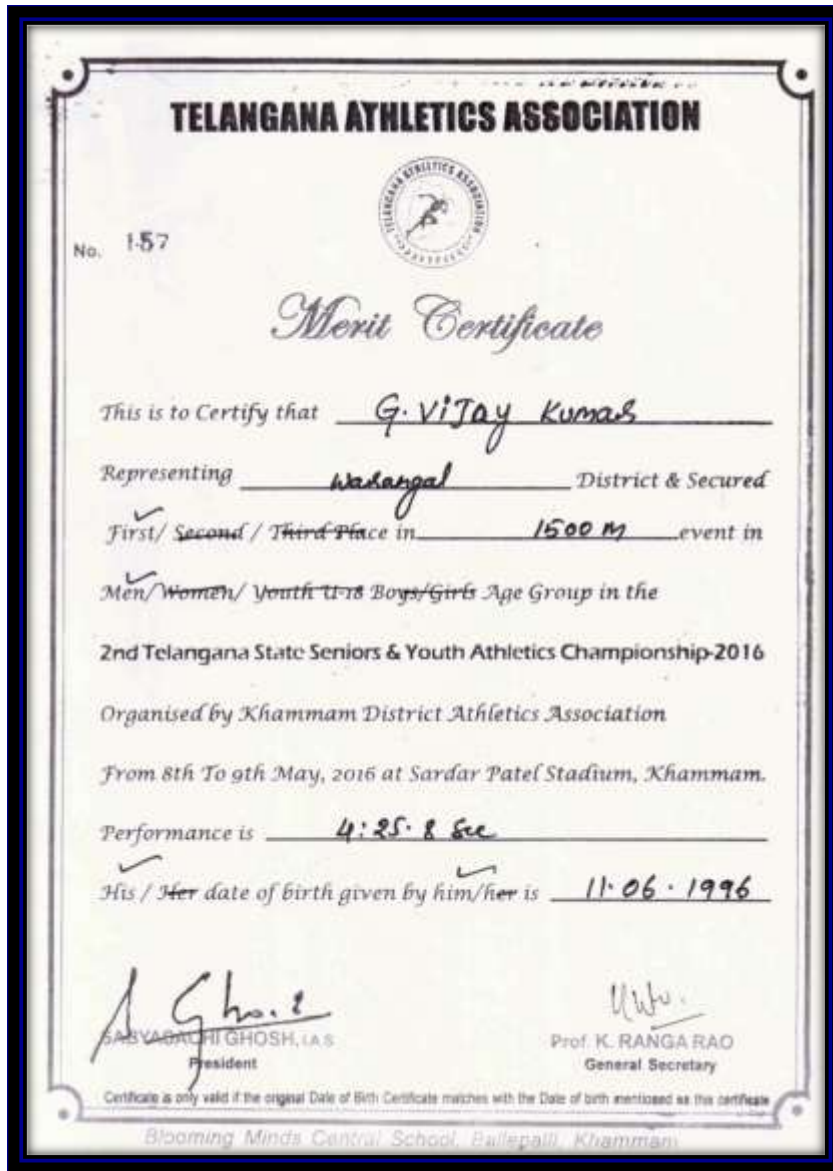 TELANGANA ATHLETICS ASSOCIATION
TELANGANA ATHLETICS ASSOCIATION
No. 157
Merit Certificate
This is to Certify that G. Vijay Kumar
Representing Warangal District & Secured
First/ Second / Third Place in 1500 M event in
Men/Women/ Youth U-18 Boys/Girls Age Group in the
2nd Telangana State Seniors & Youth Athletics Championship-2016
Organised by Khammam District Athletics Association
From 8th To 9th May, 2016 at Sardar Patel Stadium, Khammam.
Performance is 4:25.8 Sec
His / Her date of birth given by him/her is 11.06.1996
SABYASACHI GHOSH, I.A.S
President
Prof. K. RANGA RAO
General Secretary
Certificate is only valid if the original Date of Birth Certificate matches with the Date of birth mentioned as this certificate
Blooming Minds Central School, Ballepalli, Khammam